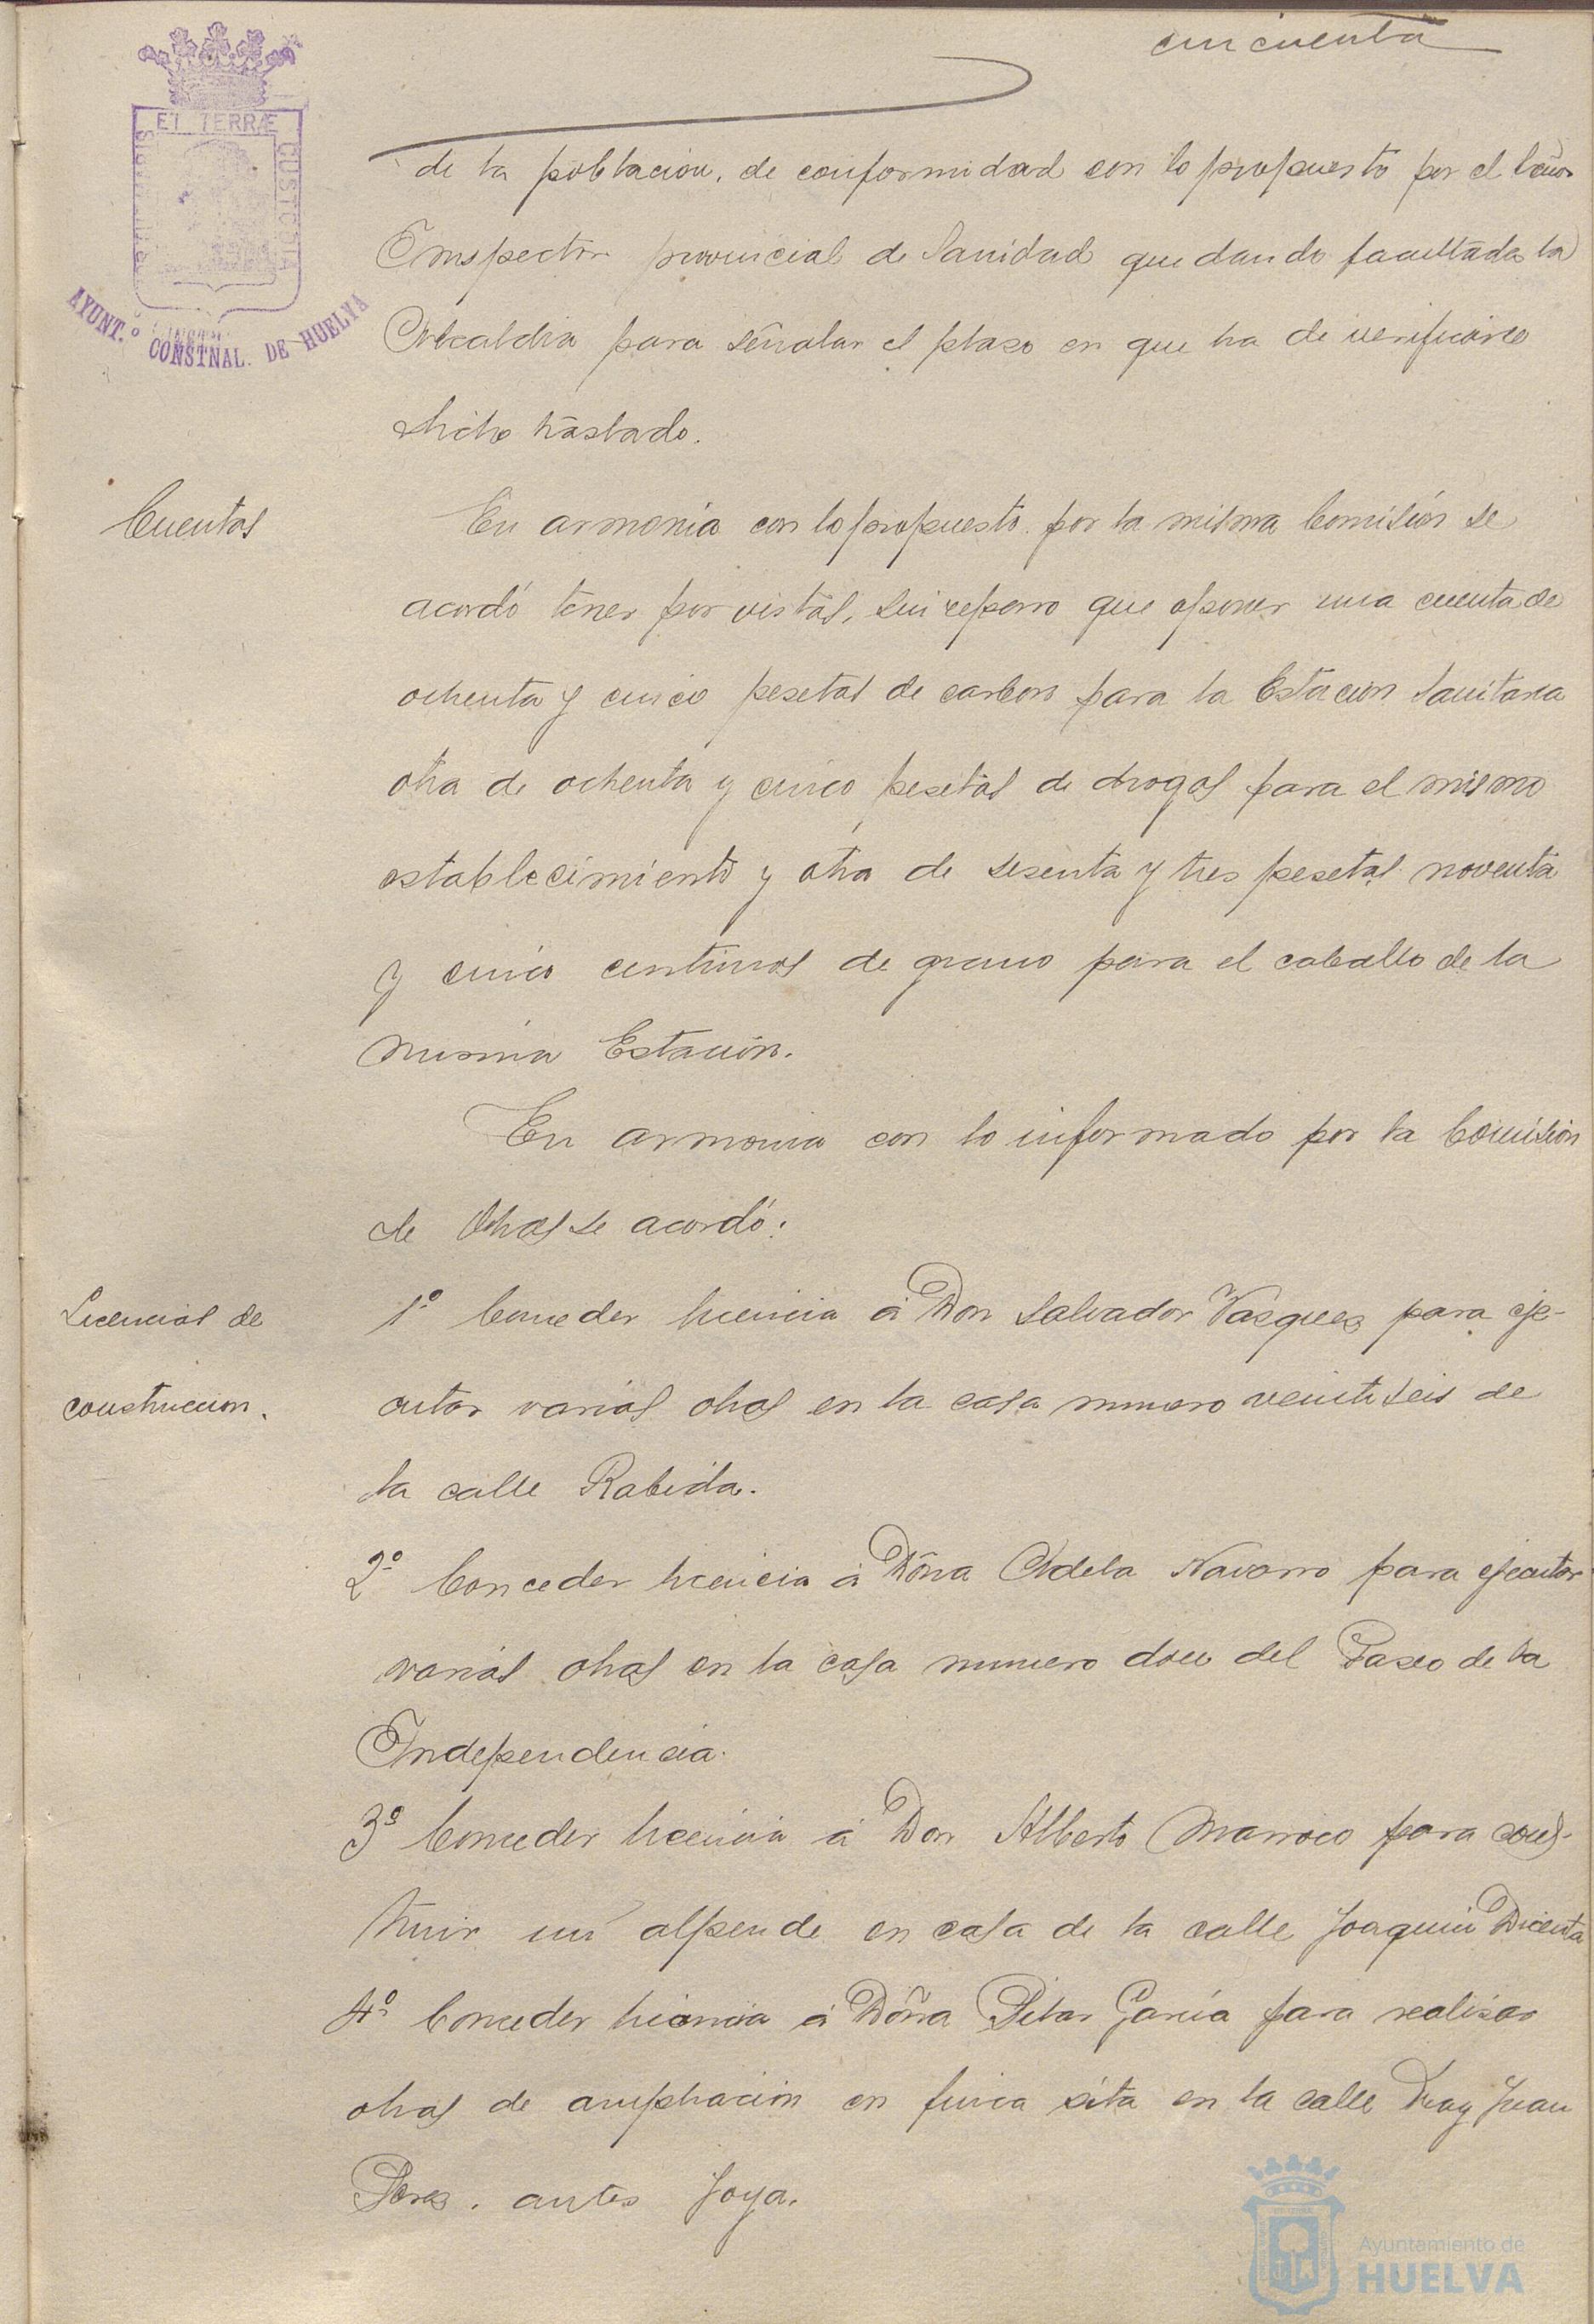 cincuenta
ET TERRÆ
CUSTODIA
AYUNT.º CONSTNAL. DE HUELVA
de la poblacion, de conformidad con lo propuesto por el Señor
Inspector provincial de Sanidad quedando facultada la
Alcaldia para señalar el plazo en que ha de verificarse
dicho traslado.
Cuentas
En armonía con lo propuesto por la misma Comisión se
acordó tener por vistas, sin reparo que oponer una cuenta de
ochenta y cinco pesetas de carbon para la Estacion Sanitaria
otra de ochenta y cinco pesetas de drogas para el mismo
establecimiento y otra de sesenta y tres pesetas noventa
y cinco centimos de grano para el caballo de la
misma Estación.
En armonia con lo informado por la Comisión
de Obras se acordó:
Licencias de
construccion.
1º Conceder licencia á Don Salvador Vazquez para eje-
cutar varias obras en la casa numero veintiseis de
la calle Rabida.
2º Conceder licencia á Doña Adela Navarro para ejecutar
varias obras en la casa numero doce del Paseo de la
Independencia.
3º Conceder licencia á Don Alberto Marroco para cons-
truir un alpende en casa de la calle Joaquin Dicenta
4º Conceder licencia á Doña Pilar García para realizar
obras de ampliacion en finca sita en la calle Fray Juan
Perez, antes Joya.
Ayuntamiento de
HUELVA